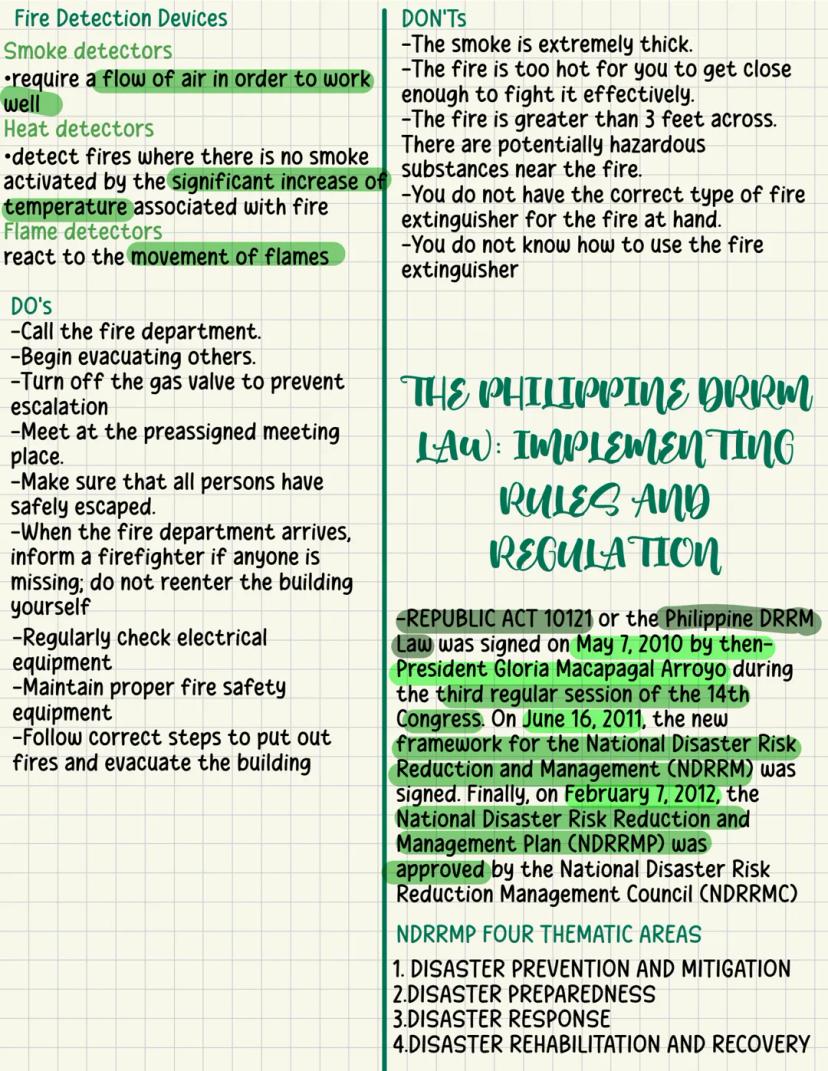 Fire Detection Devices
Smoke detectors
•require a flow of air in order to work
well
Heat detectors
•detect fires where there is no smoke
activated by the significant increase of
temperature associated with fire
Flame detectors
react to the movement of flames
DO's
-Call the fire department.
-Begin evacuating others.
-Turn off the gas valve to prevent
escalation
-Meet at the preassigned meeting
place.
-Make sure that all persons have
safely escaped.
-When the fire department arrives,
inform a firefighter if anyone is
missing; do not reenter the building
yourself
-Regularly check electrical
equipment
-Maintain proper fire safety
equipment
-Follow correct steps to put out
fires and evacuate the building
DON'Ts
-The smoke is extremely thick.
-The fire is too hot for you to get close
enough to fight it effectively.
-The fire is greater than 3 feet across.
There are potentially hazardous
substances near the fire.
-You do not have the correct type of fire
extinguisher for the fire at hand.
-You do not know how to use the fire
extinguisher
THE PHILIPPINE DRRM
LAW: IMPLEMENTING
RULES AND
REGULATION
-REPUBLIC ACT 10121 or the Philippine DRRM
Law was signed on May 7, 2010 by then-
President Gloria Macapagal Arroyo during
the third regular session of the 14th
Congress. On June 16, 2011, the new
framework for the National Disaster Risk
Reduction and Management (NDRRM) was
signed. Finally, on February 7, 2012, the
National Disaster Risk Reduction and
Management Plan (NDRRMP) was
approved by the National Disaster Risk
Reduction Management Council (NDRRMC)
NDRRMP FOUR THEMATIC AREAS
1. DISASTER PREVENTION AND MITIGATION
2.DISASTER PREPAREDNESS
3.DISASTER RESPONSE
4.DISASTER REHABILITATION AND RECOVERY